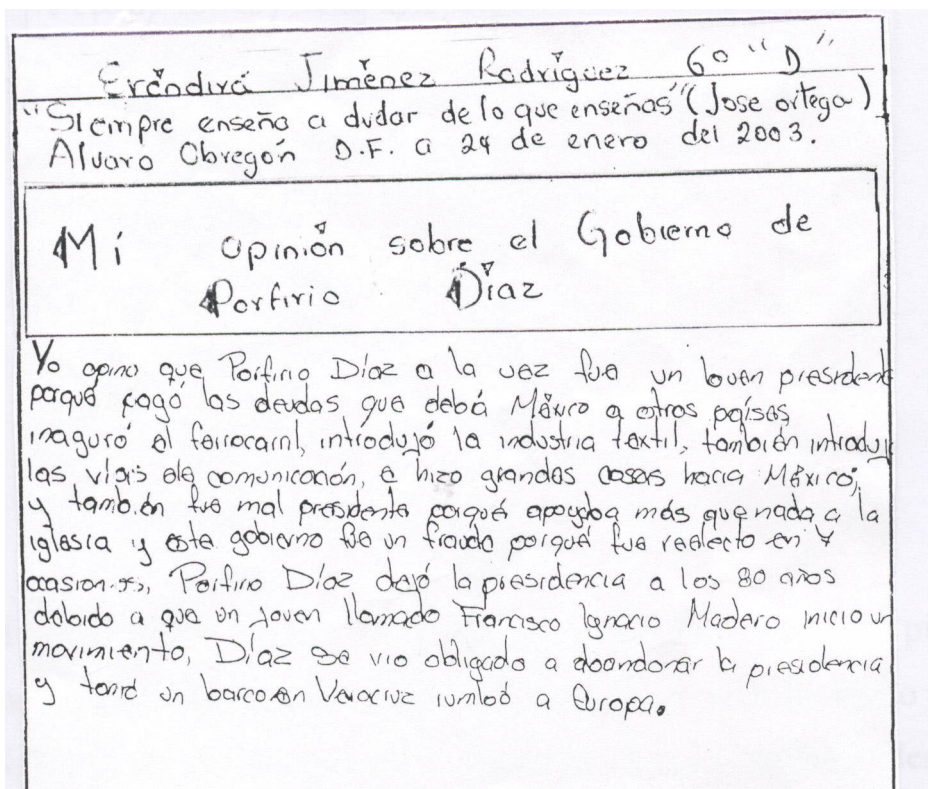 Erẽndirá Jiménez Rodríguez 6o "D"
"Siempre enseña a dudar de lo que enseñas" (Jose ortega)
Alvaro Obregón D.F. a 24 de enero del 2003.
Mi opinión sobre el Gobierno de
Porfirio Díaz
Yo opino que Porfirio Díaz a la vez fue un buen president
porqué pagó las deudas que debá México a otros países
inaguró el ferrocarril, introdujó la industria textil, también introduj
las vías de comunicación, e hizo grandes cosas hacia México,
y también fue mal presidente porqué apoyaba más que nada a la
iglesia y este gobierno fue un fraude porqué fue reelecto en
ocasiones, Porfirio Díaz dejó la presidencia a los 80 años
debido a que un joven llamado Francisco Ignacio Madero inicio un
movimiento, Díaz se vio obligado a abandonar la presidencia
y tomó un barco en Veracruz rumbo a Europa.